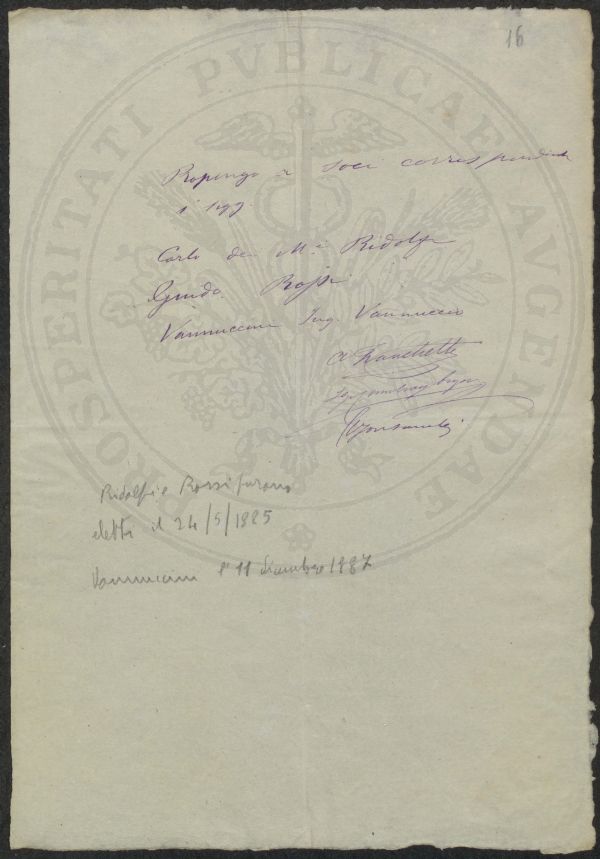 16
PROSPERITATI PVBLICAE AVGENDAE
Propongo a Soci corrispondenti
i sigg.
Carlo de Mi Ridolfi
Guido Rossi
Vannuccini Ing. Vannuccio
A Franchetti
Ridolfi e Rossi furono
eletti il 24/5/1885
Vannuccini l'11 dicembre 1887